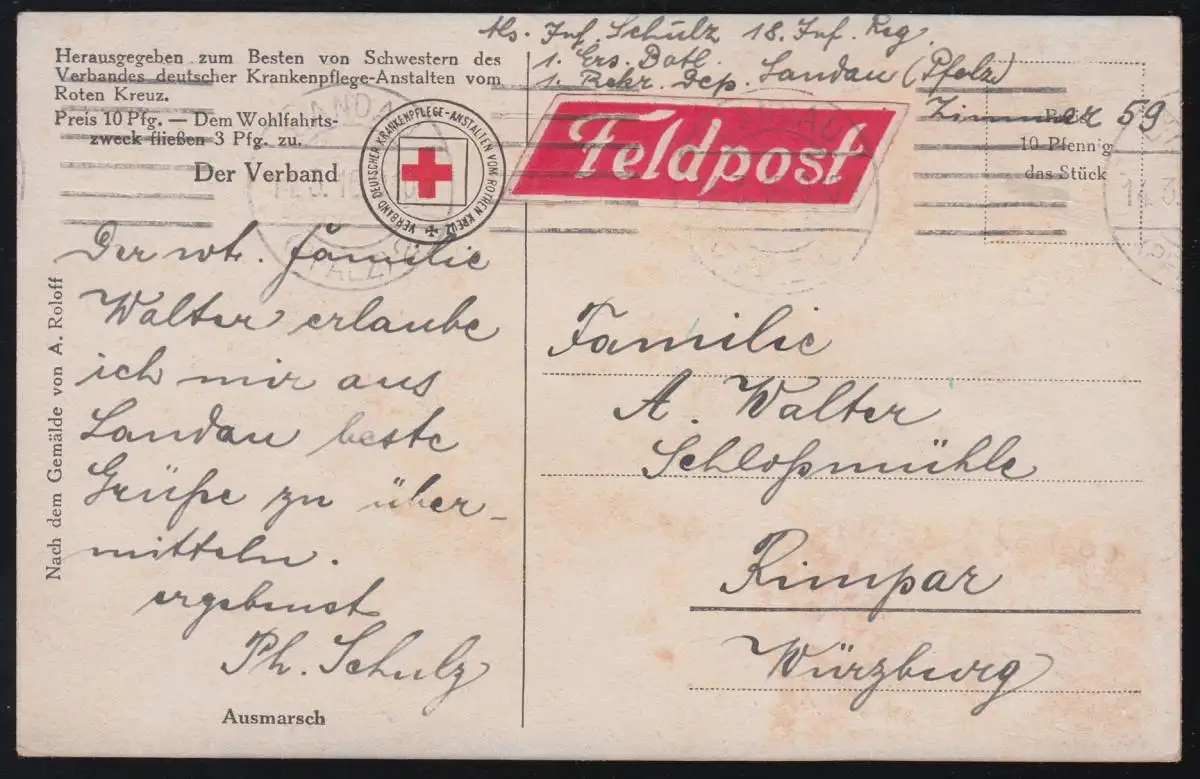 Abs. Inf. Schulz 18. Inf. Reg.
1. Ers. Batl.
1. Rekr. Dep. Landau (Pfalz)
Zimmer 59
Herausgegeben zum Besten von Schwestern des
Verbandes deutscher Krankenpflege-Anstalten vom
Roten Kreuz.
Preis 10 Pfg. — Dem Wohlfahrts-
zweck fließen 3 Pfg. zu.
Der Verband
VERBAND DEUTSCHER KRANKENPFLEGE-ANSTALTEN VOM ROTHEN KREUZ
Feldpost
10 Pfennig
das Stück
LANDAU
(PFALZ)
Der wt. Familie
Walter erlaube
ich mir aus
Landau beste
Grüße zu über-
mitteln.
ergebenst
Ph. Schulz
Ausmarsch
Nach dem Gemälde von A. Roloff
Familie
A. Walter
Schloßmühle
Rimpar
Würzburg